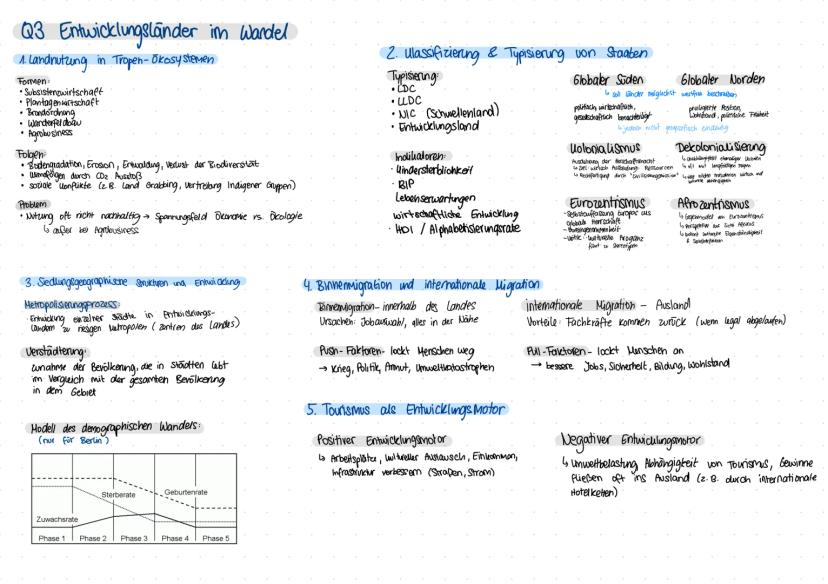 Q3 Entwicklungsländer im Wandel
1. Landnutzung in Tropen-Ökosystemen
Formen:
• Subsistenzwirtschaft
• Plantagenwirtschaft
• Brandrodung
• Wanderfeldbau
• Agrobusiness
Folgen:
• Bodengradation, Erosion, Entwaldung, Verlust der Biodiversität
• Klimafolgen durch CO2 Ausstoß
• soziale Konflikte (z.B. Land Grabbing, Vertreibung Indigener Gruppen)
Problem
• Nutzung oft nicht nachhaltig → Spannungsfeld Ökonomie vs. Ökologie
↳ außer bei Agrobusiness
2. Klassifizierung & Typisierung von Staaten
Typisierung:
• LDC
• LLDC
• NIC (Schwellenland)
• Entwicklungsland
Indikatoren:
• Kindersterblichkeit
• BIP
Lebenserwartungen
wirtschaftliche Entwicklung
• HDI / Alphabetisierungsrate
Globaler Süden
Globaler Norden
↳ soll Länder möglichst wertfrei beschreiben
politisch, wirtschaftlich,
gesellschaftlich benachteiligt
privilegierte Position,
Wohlstand, politische Freiheit
↳ jedoch nicht geografisch eindeutig
Kolonialismus
Ausdehnung der Herrschaftsmacht
↳ Rechtfertigung durch "Zivilisierungsmission"
Dekolonialisierung
↳ Unabhängigkeit ehemaliger Kolonien
Eurozentrismus
- Selbstauffassung Europas als
globale Herrschaft
- Voreingenommenheit
- Kritik: kulturelle Arroganz
führt zu Stereotypen
Afrozentrismus
↳ Gegenmodell am Eurozentrismus
↳ Perspektive aus Sicht Afrikas
↳ betont kulturelle Eigenständigkeit
3. Siedlungsgeographische Strukturen und Entwicklung
Metropolisierungsprozess:
Entwicklung einzelner Städte in Entwicklungs-
ländern zu riesigen Metropolen (Zentren des Landes)
Verstädterung:
Zunahme der Bevölkerung, die in Städten lebt
im Vergleich mit der gesamten Bevölkerung
in dem Gebiet
Modell des demographischen Wandels:
(nur für Berlin)
Sterberate
Geburtenrate
Zuwachsrate
Phase 1 Phase 2 Phase 3 Phase 4 Phase 5
4. Binnenmigration und internationale Migration
Binnenmigration - innerhalb des Landes
Ursachen: Jobauswahl, alles in der Nähe
internationale Migration - Ausland
Vorteile: Fachkräfte kommen zurück (wenn legal abgelaufen)
Push-Faktoren - lockt Menschen weg
→ Krieg, Politik, Armut, Umweltkatastrophen
Pull-Faktoren - lockt Menschen an
→ bessere Jobs, Sicherheit, Bildung, Wohlstand
5. Tourismus als Entwicklungsmotor
Positiver Entwicklungsmotor
↳ Arbeitsplätze, kultureller Austausch, Einkommen,
Infrastruktur verbessern (Straßen, Strom)
Negativer Entwicklungsmotor
↳ Umweltbelastung, Abhängigkeit von Tourismus, Gewinne
fließen oft ins Ausland (z.B. durch internationale
Hotelketten)